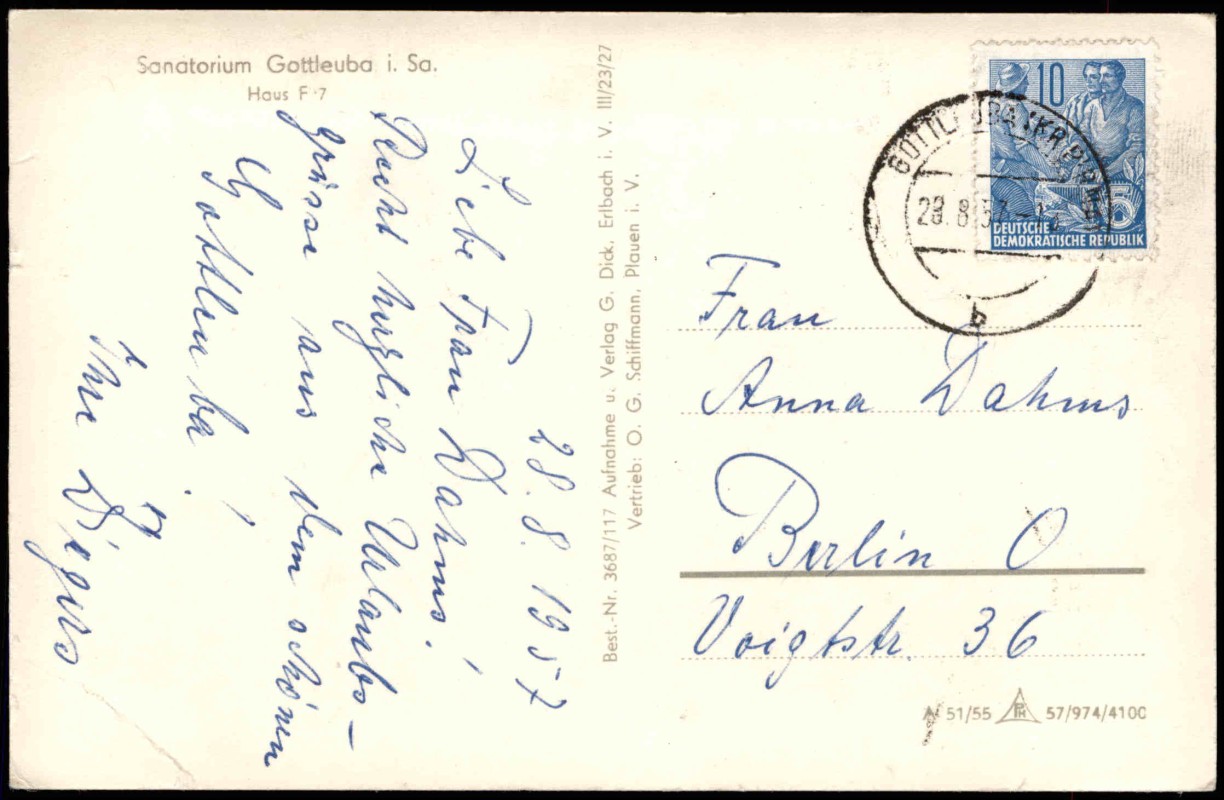 Sanatorium Gottleuba i. Sa.
Haus F 7
28.8.1957
Liebe Frau Dahms!
Recht herzliche Urlaubs-
grüsse aus dem schönen
Gottleuba!
Ihre
Best.-Nr. 3687/117 Aufnahme u. Verlag G. Dick, Erlbach i. V. III/23/27
Vertrieb: O. G. Schiffmann, Plauen i. V.
10
5
DEUTSCHE
DEMOKRATISCHE REPUBLIK
GOTTLEUBA (KR PIRNA)
28.8.57
b
Frau
Anna Dahms
Berlin O
Voigtstr. 36
A 51/55 PH 57/974/4100